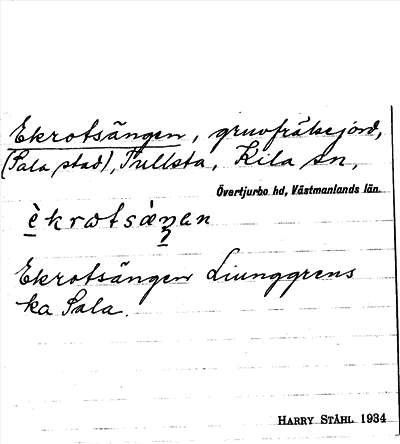 Ekrotsängen, gruvfrälsejord,
(Sala stad), Tullsta, Kila sn,
Övertjurbo hd, Västmanlands län.
è̱krɷtsàŋ̱ən
Ekrotsängen Liunggrens
ka Sala.
HARRY STÅHL 1934